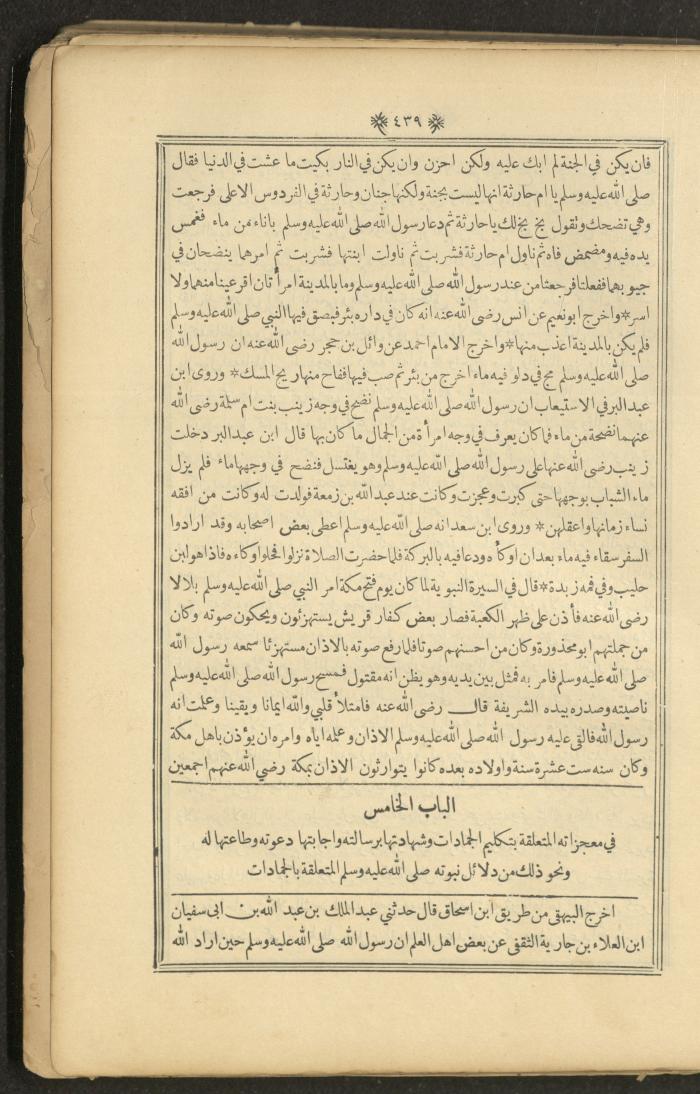 ﴿ ٤٣٩ ﴾
فان يكن في الجنة لم ابك عليه ولكن احزن وان يكن في النار بكيت ما عشت في الدنيا فقال
صلى الله عليه وسلم يا ام حارثة انها ليست بجنة ولكنها جنان وحارثة في الفردوس الاعلى فرجعت
وهي تضحك وتقول بخ بخ لك يا حارثة ثم دعا رسول الله صلى الله عليه وسلم باناء من ماء فغمس
يده فيه ومضمض فاه ثم ناول ام حارثة فشربت ثم ناولت ابنتها فشربت ثم امرهما ينضحان في
جيوبهما ففعلتا فرجعتا من عند رسول الله صلى الله عليه وسلم وما بالمدينة امرأتان اقر عينا منهما ولا
اسر * واخرج ابو نعيم عن انس رضى الله عنه انه كان في داره بئر فبصق فيها النبي صلى الله عليه وسلم
فلم يكن بالمدينة اعذب منها * واخرج الامام احمد عن وائل بن حجر رضى الله عنه ان رسول الله
صلى الله عليه وسلم مج في دلو فيه ماء اخرج من بئر ثم صب فيها ففاح منها ريح المسك * وروى ابن
عبد البر في الاستيعاب ان رسول الله صلى الله عليه وسلم نضح في وجه زينب بنت ام سلمة رضى الله
عنهما نضحة من ماء فما كان يعرف في وجه امرأة من الجمال ما كان بها قال ابن عبد البر دخلت
زينب رضى الله عنها على رسول الله صلى الله عليه وسلم وهو يغتسل فنضح في وجهها ماء فلم يزل
ماء الشباب بوجهها حتى كبرت وعجزت وكانت عند عبد الله بن زمعة فولدت له وكانت من افقه
نساء زمانها واعقلهن * وروى ابن سعد انه صلى الله عليه وسلم اعطى بعض اصحابه وقد ارادوا
السفر سقاء فيه ماء بعد ان اوكأه ودعا فيه بالبركة فلما حضرت الصلاة نزلوا فحلوا وكاءه فاذا هو لبن
حليب وفي فمه زبدة * قال في السيرة النبوية لما كان يوم فتح مكة امر النبي صلى الله عليه وسلم بلالا
رضى الله عنه فأذن على ظهر الكعبة فصار بعض كفار قريش يستهزئون ويحكون صوته وكان
من جملتهم ابو محذورة وكان من احسنهم صوتا فلما رفع صوته بالاذان مستهزئا سمعه رسول الله
صلى الله عليه وسلم فامر به فمثل بين يديه وهو يظن انه مقتول فمسح رسول الله صلى الله عليه وسلم
ناصيته وصدره بيده الشريفة قال رضى الله عنه فامتلأ قلبي والله ايمانا ويقينا وعلمت انه
رسول الله فالقى عليه رسول الله صلى الله عليه وسلم الاذان وعلمه اياه وامره ان يؤذن باهل مكة
وكان سنه ست عشرة سنة واولاده بعده كانوا يتوارثون الاذان بمكة رضي الله عنهم اجمعين
الباب الخامس
في معجزاته المتعلقة بتكليم الجمادات وشهادتها برسالته واجابتها دعوته وطاعتها له
ونحو ذلك من دلائل نبوته صلى الله عليه وسلم المتعلقة بالجمادات
اخرج البيهقي من طريق ابن اسحاق قال حدثني عبد الملك بن عبد الله بن ابى سفيان
ابن العلاء بن جارية الثقفى عن بعض اهل العلم ان رسول الله صلى الله عليه وسلم حين اراد الله